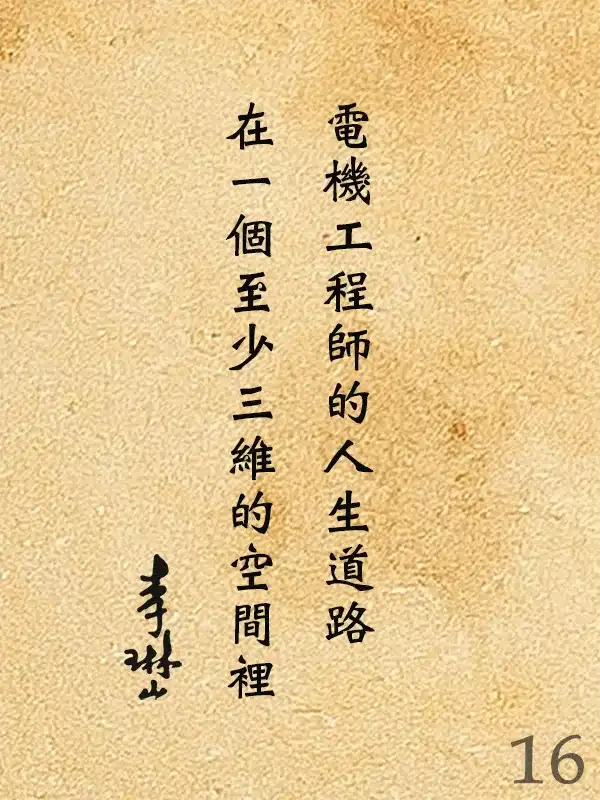 電機工程師的人生道路
在一個至少三維的空間裡
李琳山
16